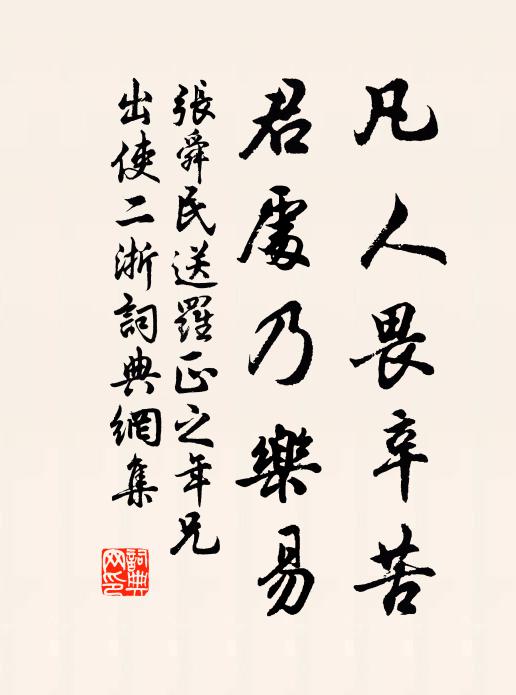 凡人畏辛苦
君處乃樂易
張舜民送羅正之年兄
出使二浙詞典網集
詞典网印